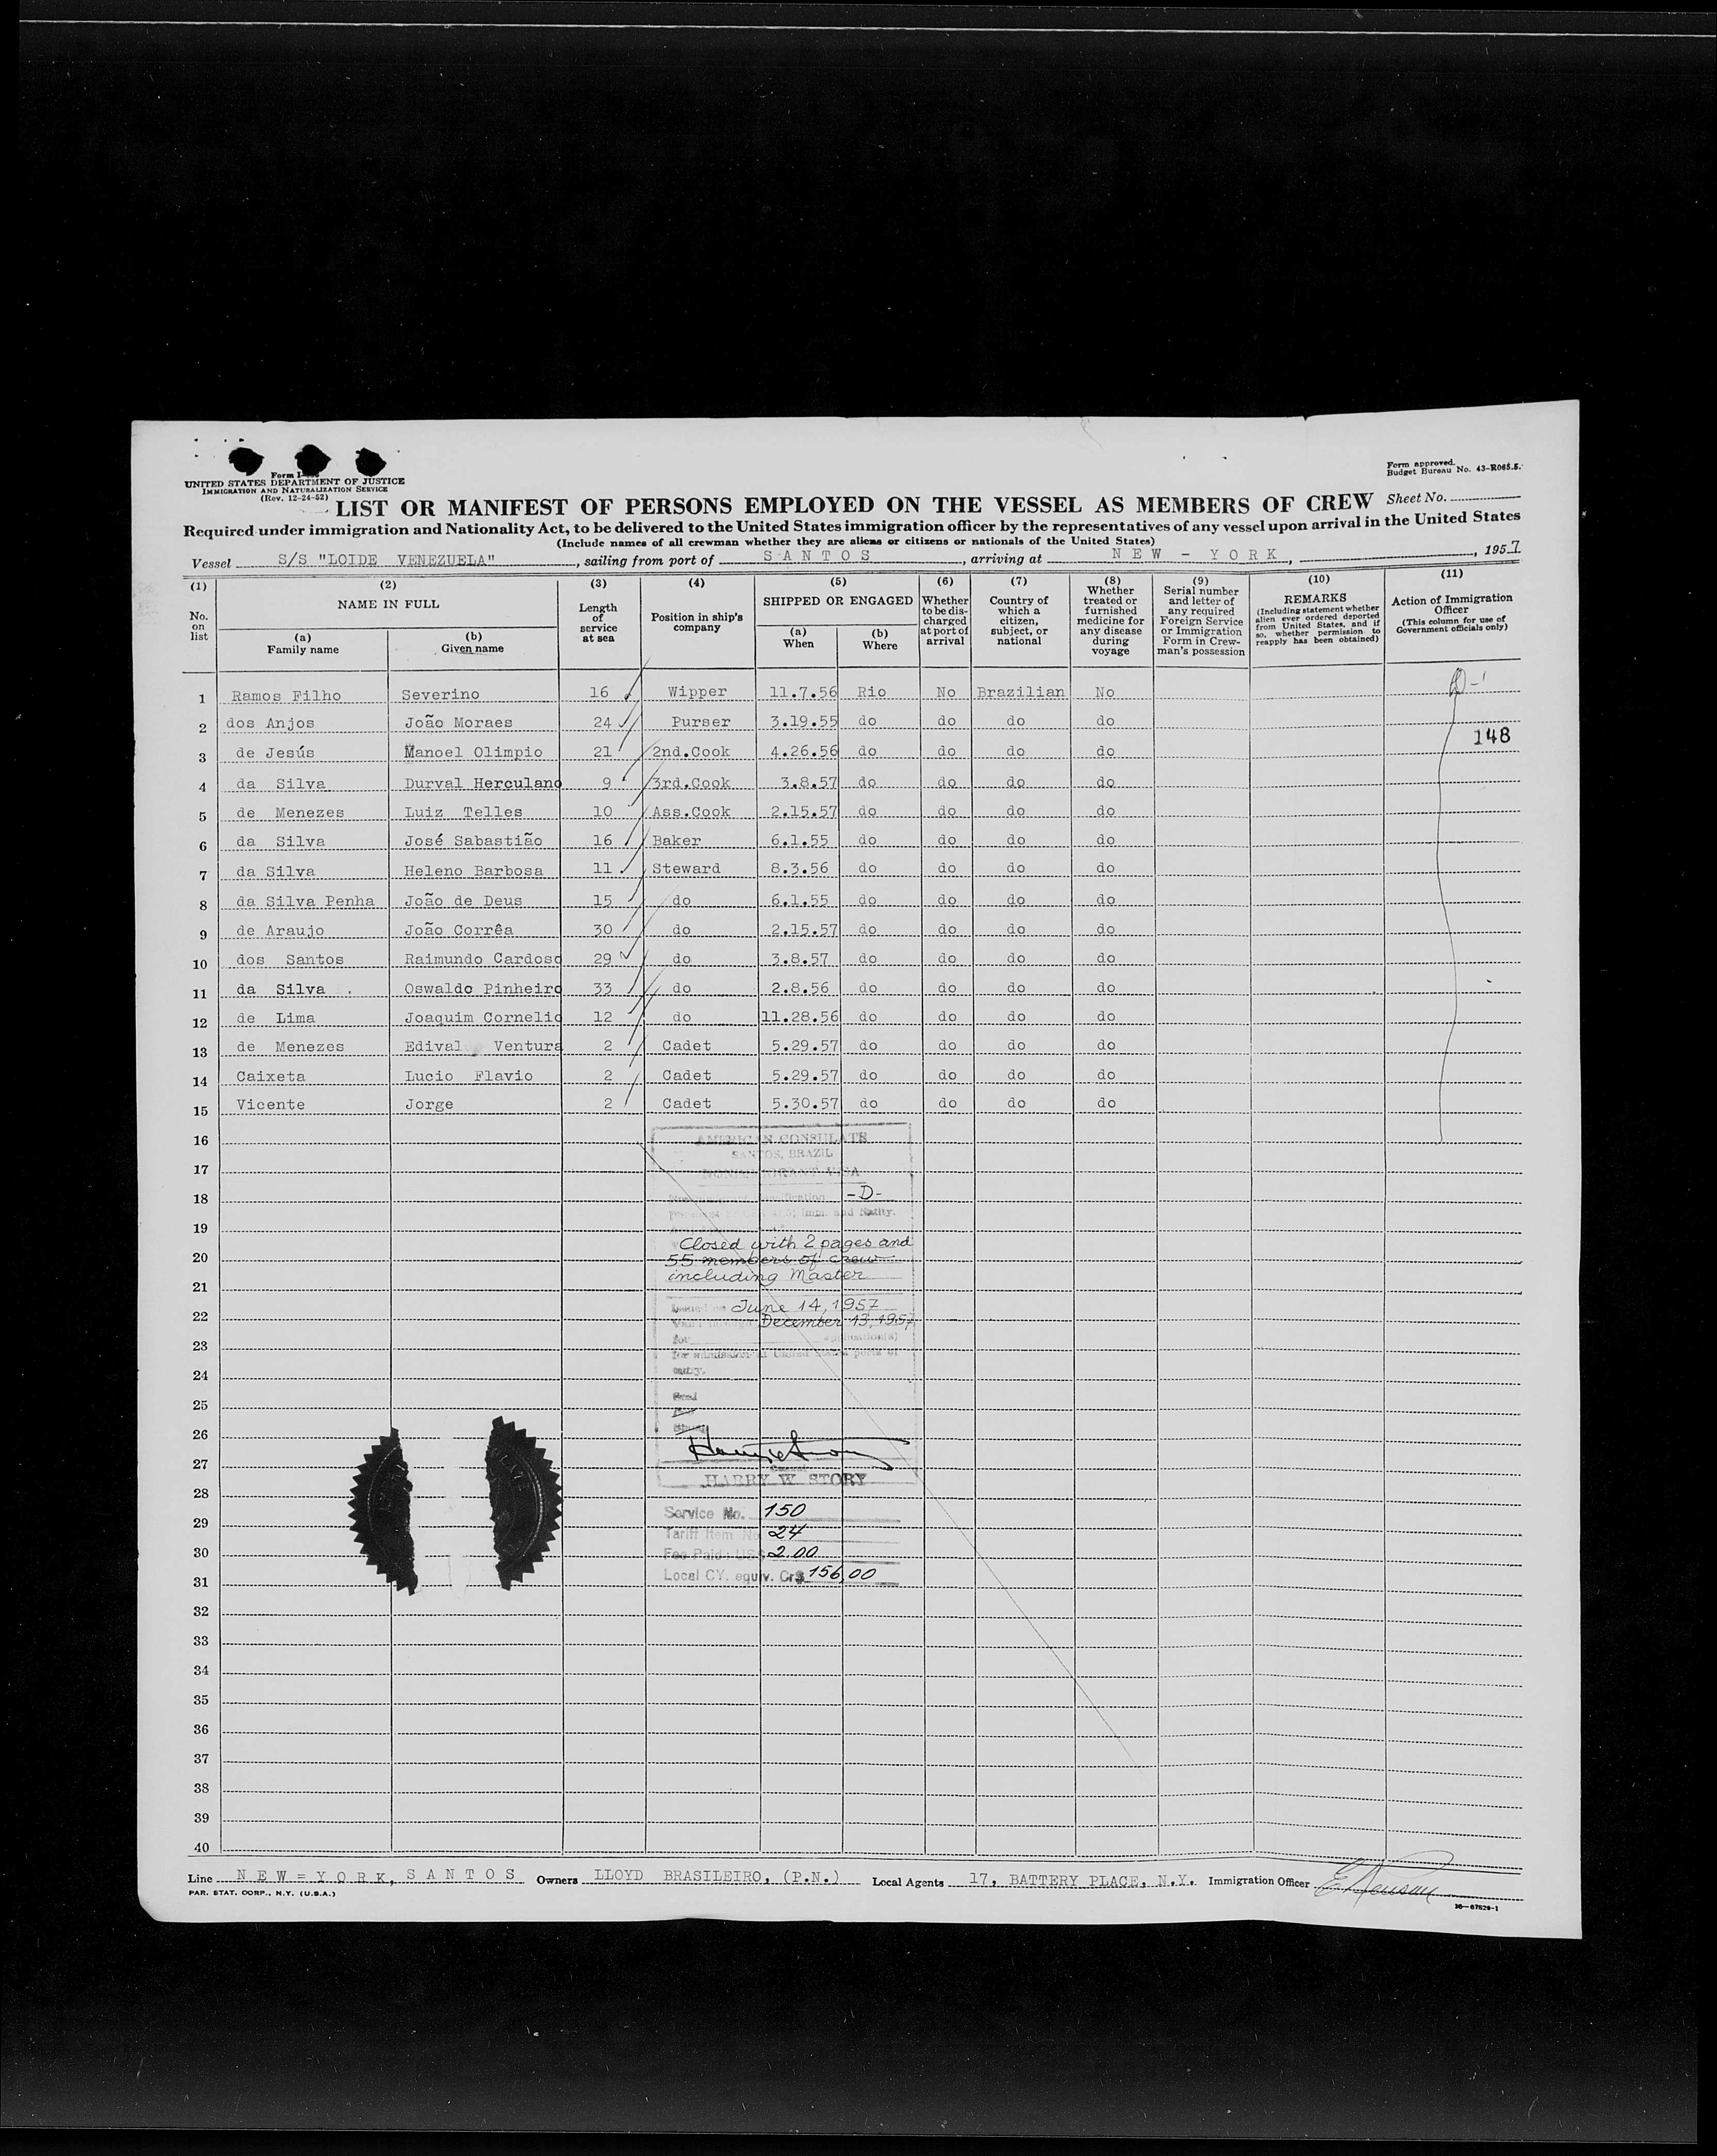 Form approved.
Budget Bureau No. 43-R065.5.
UNITED STATES DEPARTMENT OF JUSTICE
IMMIGRATION AND NATURALIZATION SERVICE
(Rev. 12-24-52)
LIST OR MANIFEST OF PERSONS EMPLOYED ON THE VESSEL AS MEMBERS OF CREW Sheet No.
Required under immigration and Nationality Act, to be delivered to the United States immigration officer by the representatives of any vessel upon arrival in the United States
(Include names of all crewman whether they are aliens or citizens or nationals of the United States)
Vessel S/S "LOIDE VENEZUELA", sailing from port of SANTOS, arriving at NEW - YORK, , 1957
(1) No. on list
(2) NAME IN FULL
(a) Family name
(b) Given name
(3) Length of service at sea
(4) Position in ship's company
(5) SHIPPED OR ENGAGED
(a) When
(b) Where
(6) Whether to be discharged at port of arrival
(7) Country of which a citizen, subject, or national
(8) Whether treated or furnished medicine for any disease during voyage
(9) Serial number and letter of any required Foreign Service or Immigration Form in Crewman's possession
(10) REMARKS (Including statement whether alien ever ordered deported from United States, and if so, whether permission to reapply has been obtained)
(11) Action of Immigration Officer (This column for use of Government officials only)
1 Ramos Filho Severino 16 Wipper 11.7.56 Rio No Brazilian No
2 dos Anjos João Moraes 24 Purser 3.19.55 do do do do
148
3 de Jesús Manoel Olimpio 21 2nd.Cook 4.26.56 do do do do
4 da Silva Durval Herculano 9 3rd.Cook 3.8.57 do do do do
5 de Menezes Luiz Telles 10 Ass.Cook 2.15.57 do do do do
6 da Silva José Sabastião 16 Baker 6.1.55 do do do do
7 da Silva Heleno Barbosa 11 Steward 8.3.56 do do do do
8 da Silva Penha João de Deus 15 do 6.1.55 do do do do
9 de Araujo João Corrêa 30 do 2.15.57 do do do do
10 dos Santos Raimundo Cardoso 29 do 3.8.57 do do do do
11 da Silva Oswaldo Pinheiro 33 do 2.8.56 do do do do
12 de Lima Joaquim Cornelio 12 do 11.28.56 do do do do
13 de Menezes Edival Ventura 2 Cadet 5.29.57 do do do do
14 Caixeta Lucio Flavio 2 Cadet 5.29.57 do do do do
15 Vicente Jorge 2 Cadet 5.30.57 do do do do
16 AMERICAN CONSULATE
SANTOS, BRAZIL
17 NONIMMIGRANT VISA
18 -D-
19
Closed with 2 pages and
20 55 members of crew
21 including Master
22 Issued on June 14, 1957
December 13, 1957
23 for application(s)
for admission at United States ports of
24 entry.
25
26
27
HARRY W STORY
28
Service No. 150
29 Tariff Item No. 24
30 Fee Paid: US$ 2.00
31 Local CY. equiv. Cr$ 156,00
32
33
34
35
36
37
38
39
40
Line NEW=YORK, SANTOS Owners LLOYD BRASILEIRO, (P.N.) Local Agents 17, BATTERY PLACE, N.Y. Immigration Officer
PAR. STAT. CORP., N.Y. (U.S.A.)
16-67629-1